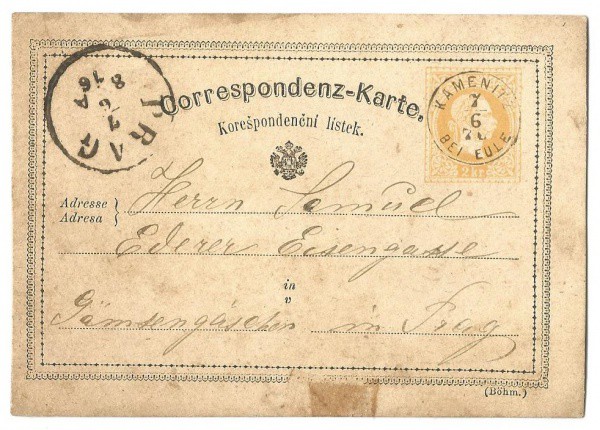 Correspondenz-Karte.
Korešpondenční lístek.
KAMENITZ
7
6
76
BEI EULE
2 kr
PRAG
8
6
7
Adresse
Adresa
Herrn Samuel
Ederer Eisengasse
in
v
Gämsengässchen in Prag
(Böhm.)